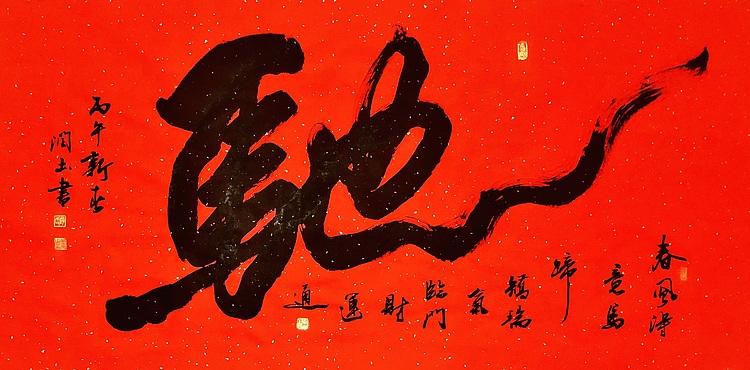 馳
春風得
意馬
蹄
驕瑞
氣
臨門
財
運
通
丙午新春
潤土書